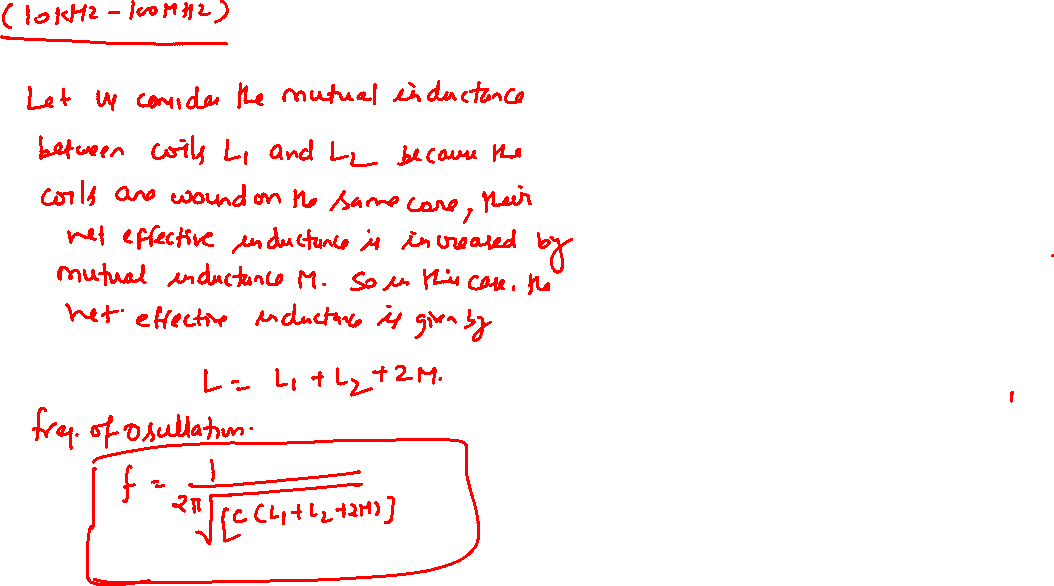 (10KHz - 100MHz)
Let us consider the mutual inductance
between coils L₁ and L₂ because the
coils are wound on the same core, their
net effective inductance is increased by
mutual inductance M. So in this case, the
net effective inductance is given by
L = L₁ + L₂ + 2M.
freq. of oscillation.
f = 1 / 2π√[C(L₁+L₂+2M)]